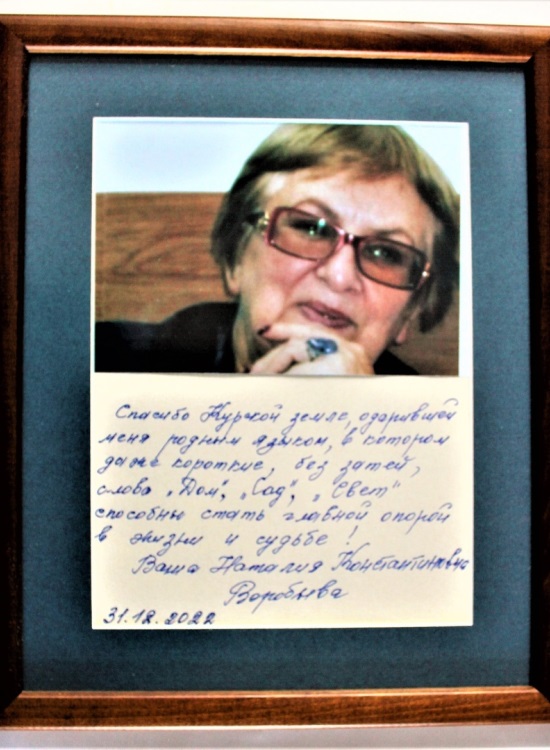 Спасибо Курской земле, одарившей
меня родным языком, в котором
даже короткие, без затей,
слова „Дом", „Сад", „Свет"
способны стать главной опорой
в жизни и судьбе!
Ваша Наталия Константиновна
Воробьева
31.12.2022